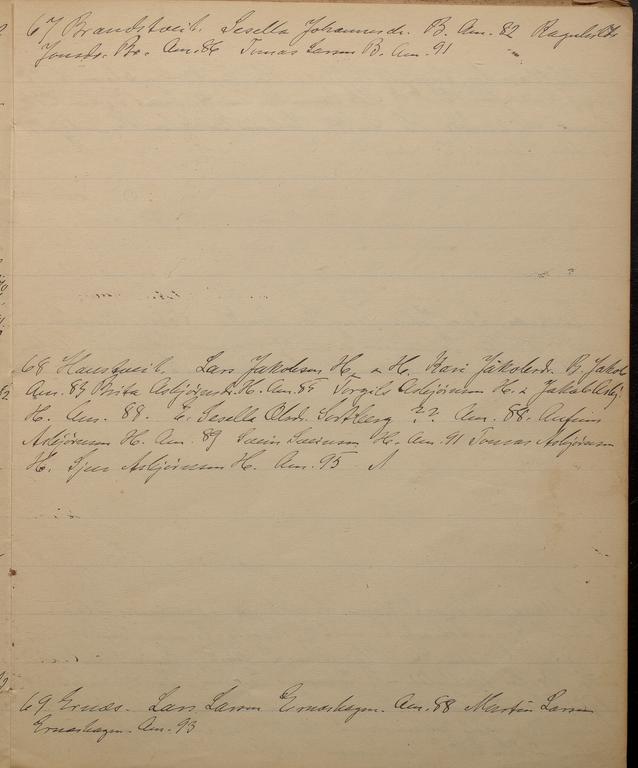 67 Brandstveit. Sesella Johannesdr. B. Am. 82 Ragnhilda
Jonsdr. Br. Am. 86 Tomas Larsen B. Am. 91
68 Haustveit. Lars Jakobson H. H. Kari Jakobsdr. B. Jakob
Am. 83 Brita Asbjörnsdr. H. Am. 85 Torgils Asbjörnson H. Jakob Asbj.
H. Am. 88. Sesella Olsd. ?? Am. 88. Anfinn
Asbjörnson H. Am. 89 Svein H. Am. 91 Tomas Asbjörnson
H. Sjur Asbjörnson H. Am. 95
69 Ernæs. Lars Larson Ernæshagen. Am. 88 Martin Larson
Ernæshagen. Am. 93